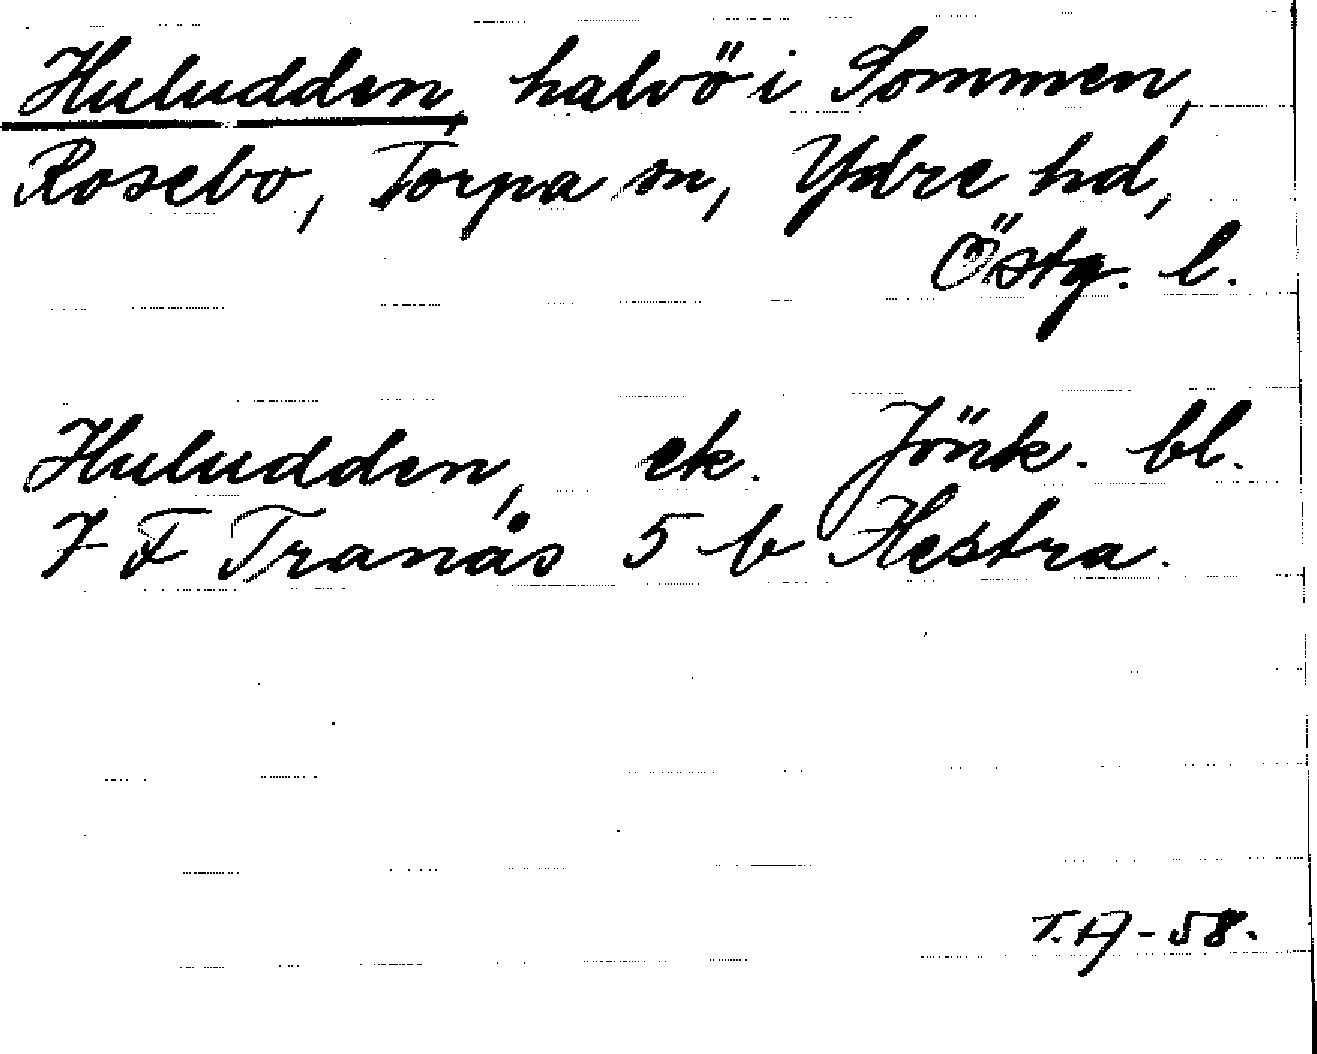 Huludden, halvö i Sommen,
Rosebo, Torpa sn, Ydre hd,
Östg. l.
Huludden, ek. Jönk. bl.
7 F Tranås 5 b Hestra.
T.A-58.